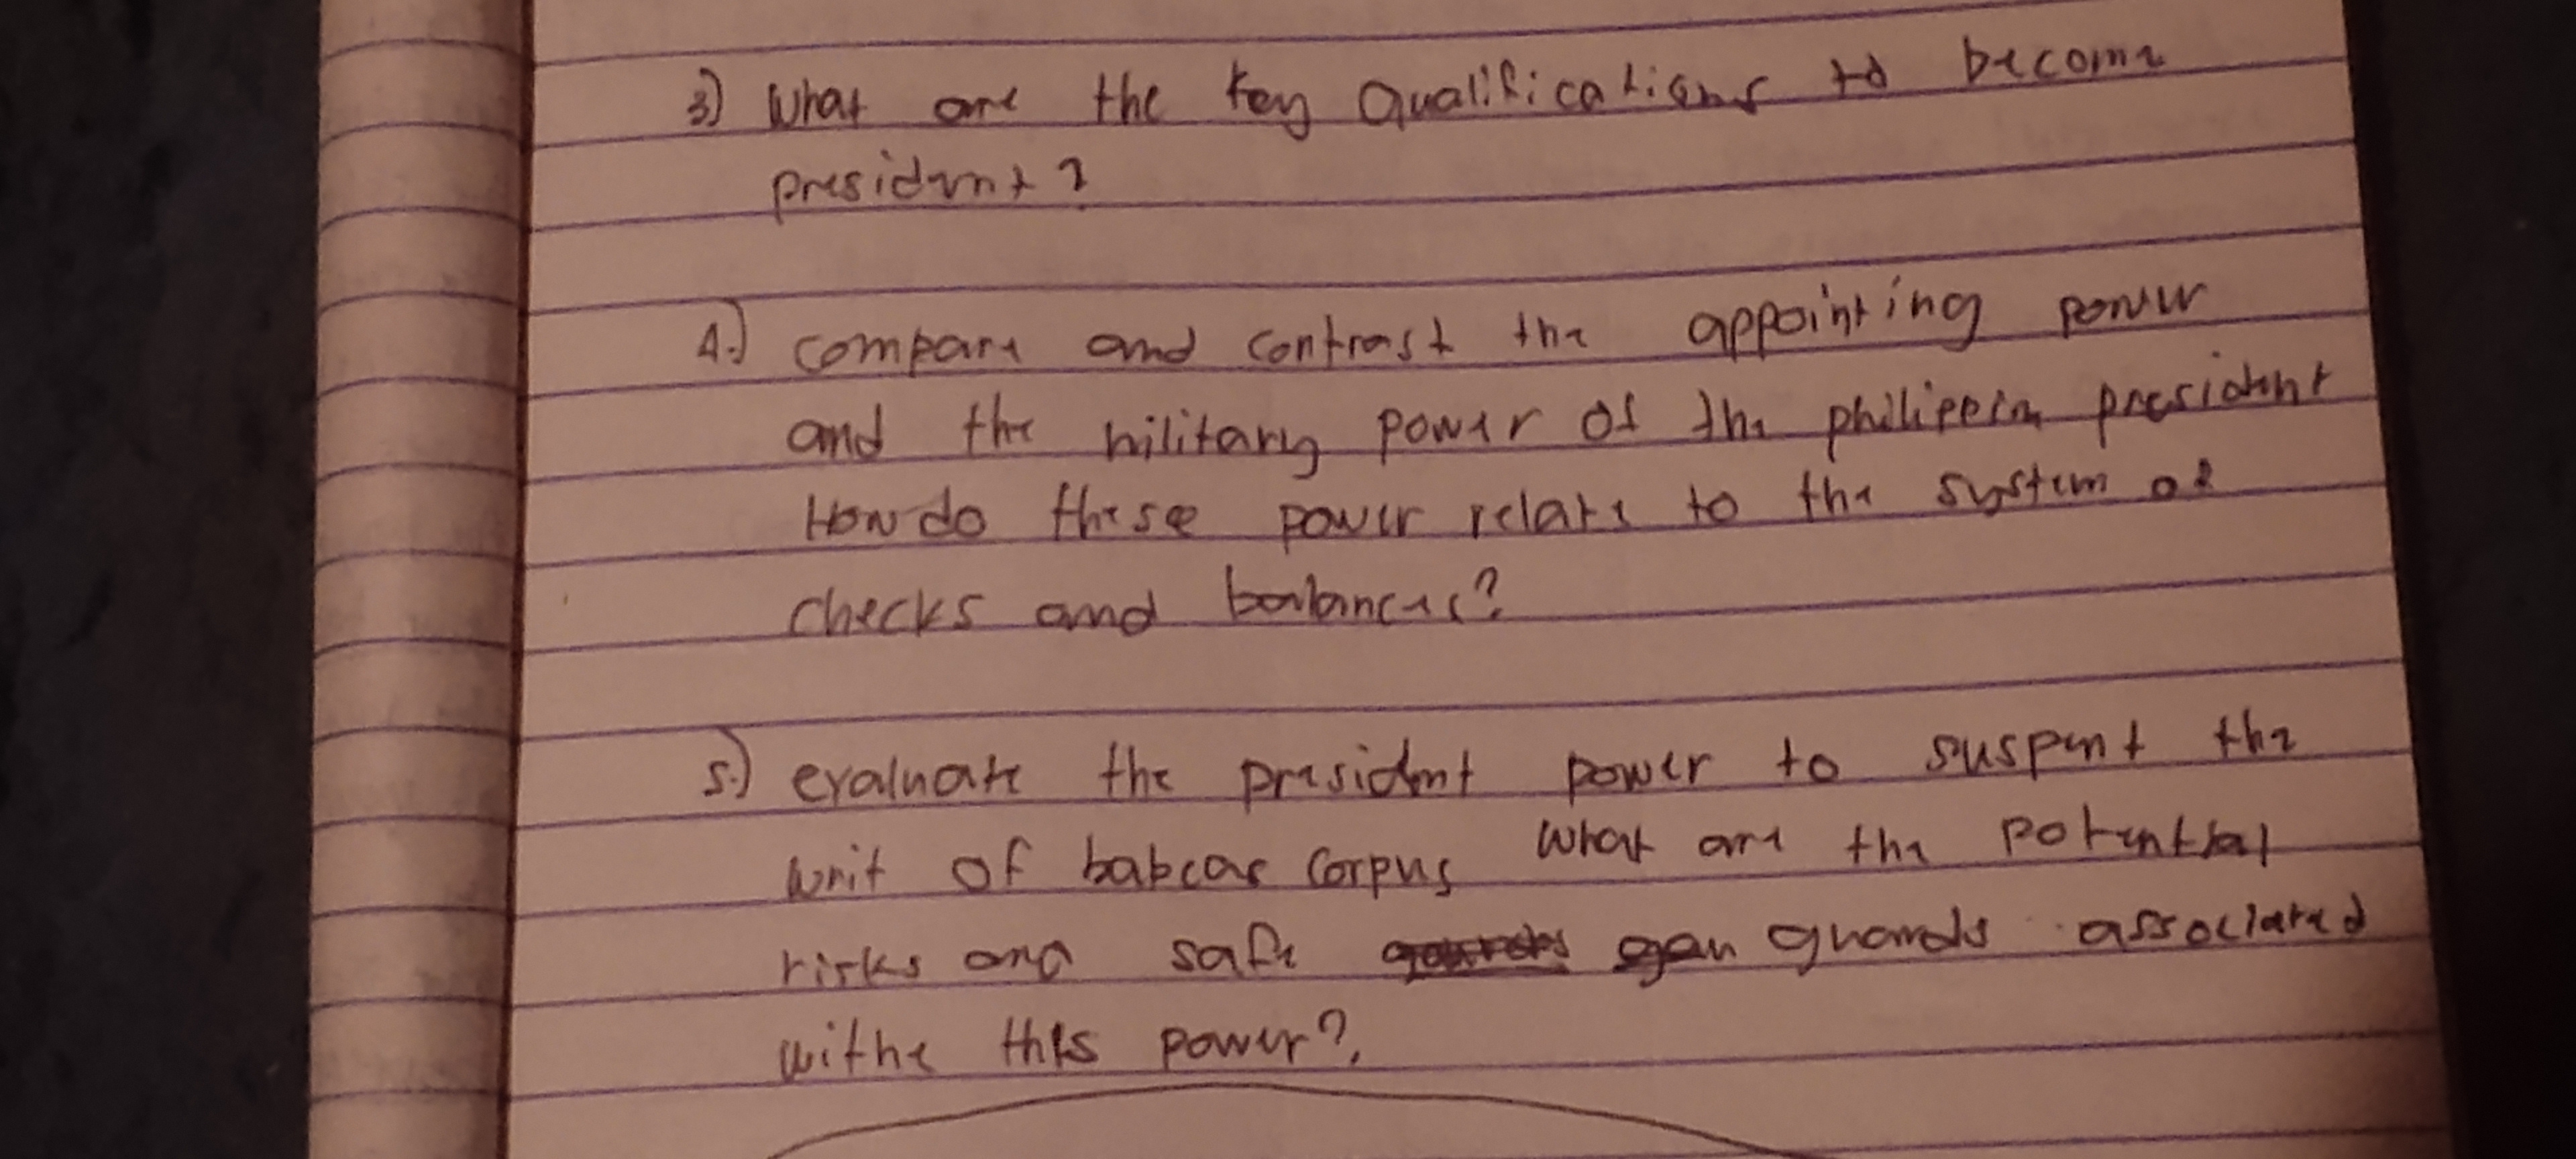 3) What are the key Qualifications to become
president?
4.) compare and contrast the appointing power
and the military power of the philippin president
How do these power relate to the system of
checks and balances?
5.) evaluate the president power to suspent the
writ of babcas Corpus What are the potential
risks and safe guards associated
withe this power?